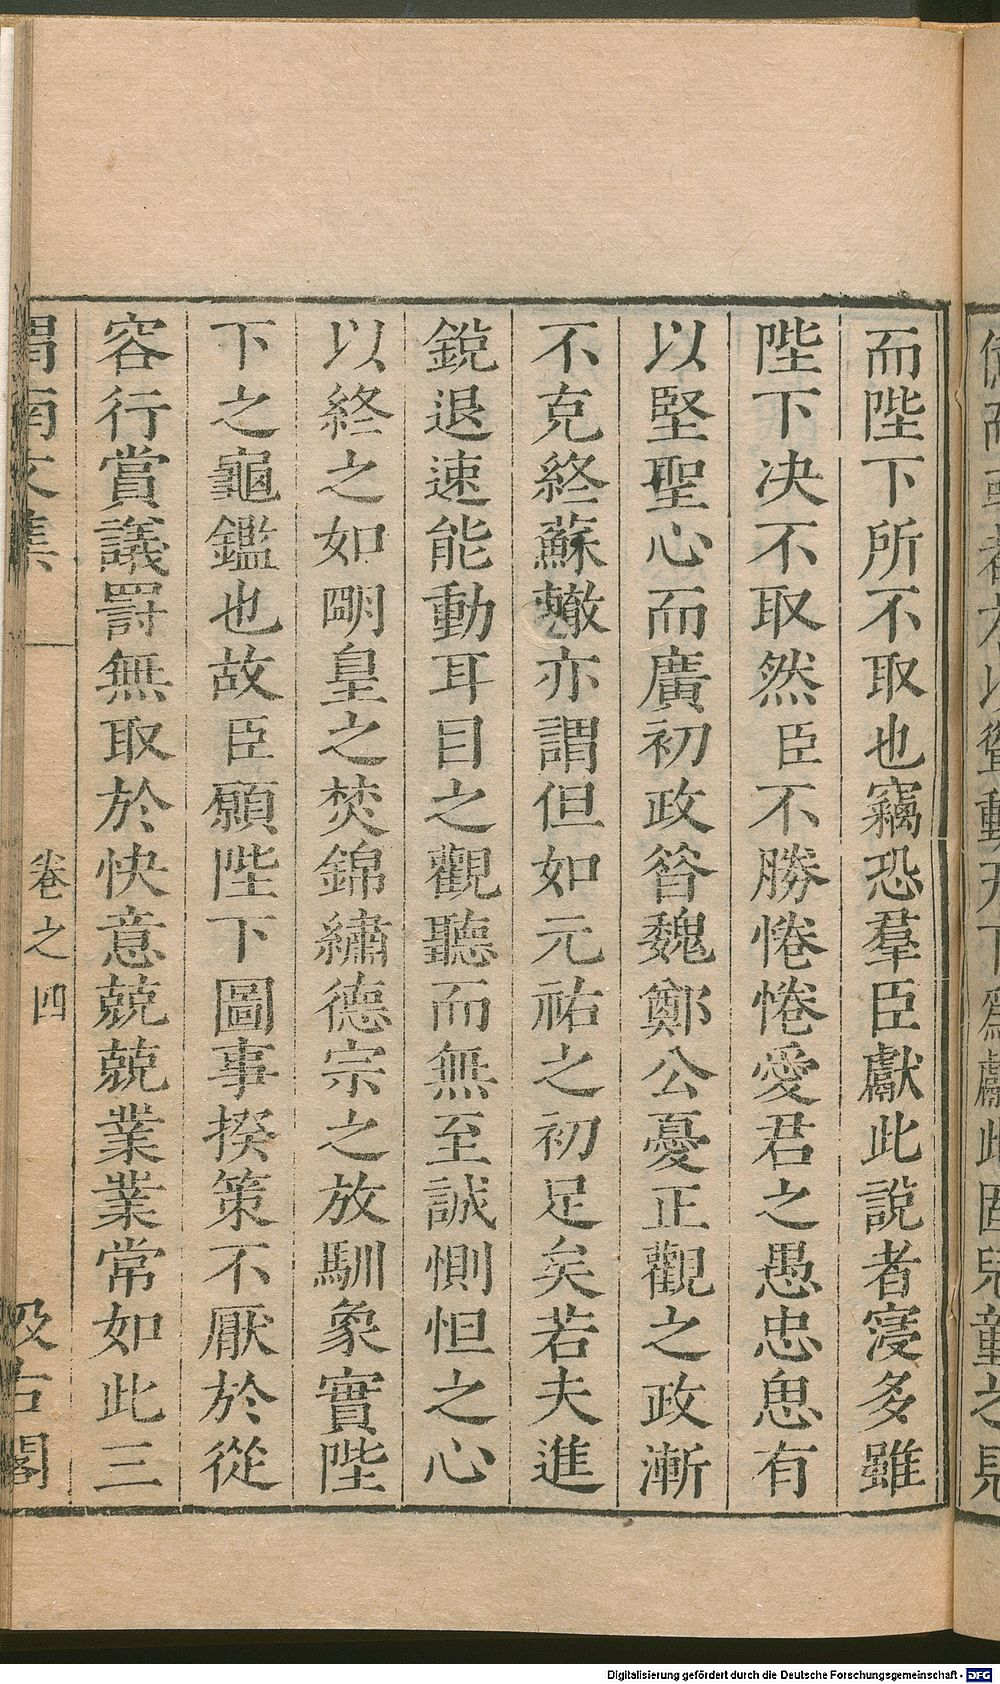 而陛下所不取也竊恐羣臣獻此說者寖多雖
陛下决不取然臣不勝惓惓愛君之愚忠思有
以堅聖心而廣初政昝魏鄭公憂正觀之政漸
不克終蘇轍亦謂但如元祐之初足矣若夫進
銳退速能動耳目之觀聽而無至誠惻怛之心
以終之如明皇之焚錦繡德宗之放馴象實陛
下之龜鑑也故臣願陛下圖事揆策不厭於從
容行賞議罰無取於快意兢兢業業常如此三
南文集
卷之四
閣
Digitalisierung gefördert durch die Deutsche Forschungsgemeinschaft - DFG